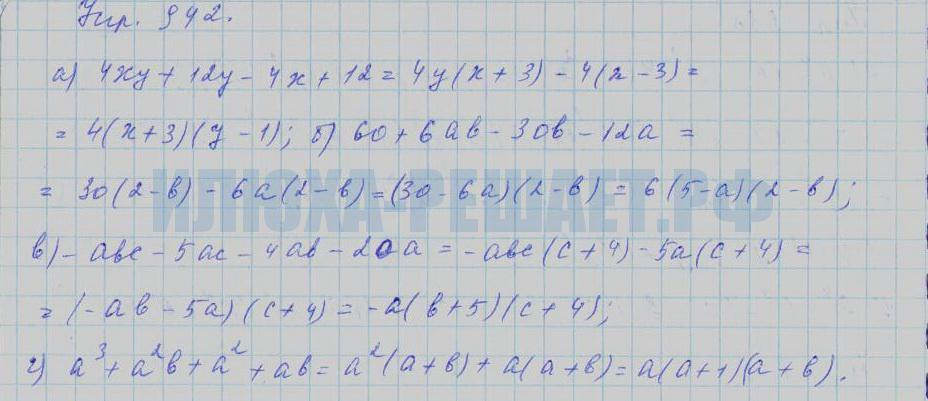 Упр. 942.
а) 4xy + 12y - 4x + 12 = 4y(x + 3) - 4(x - 3) =
= 4(x+3)(y - 1); б) 60 + 6ab - 30b - 12a =
= 30(2-b) - 6a(2-b) = (30-6a)(2-b) = 6(5-a)(2-b);
ИЛЮХА-РЕШАЕТ.РФ
в) - abc - 5ac - 4ab - 20a = -abc(c+4) - 5a(c+4) =
= (-ab - 5a)(c+4) = -a(b+5)(c+4);
г) a³ + a²b + a² + ab = a²(a+b) + a(a+b) = a(a+1)(a+b).